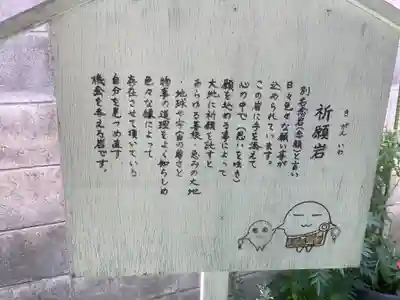 きがんいわ
祈願岩
別名念岩(念願)と言い
日々色々な願い事が
込められています。
この岩に手を添えて
心の中で(思いを呟き)
願を込める事によって
大地に祈願を託すと
あらゆる善様・恵みの大地
・地球や宇宙の尊さと
物事の道理をよく知らしめ
色々な縁によって
存在させて頂いている
自分を見つめ直す
機会を与える岩です。